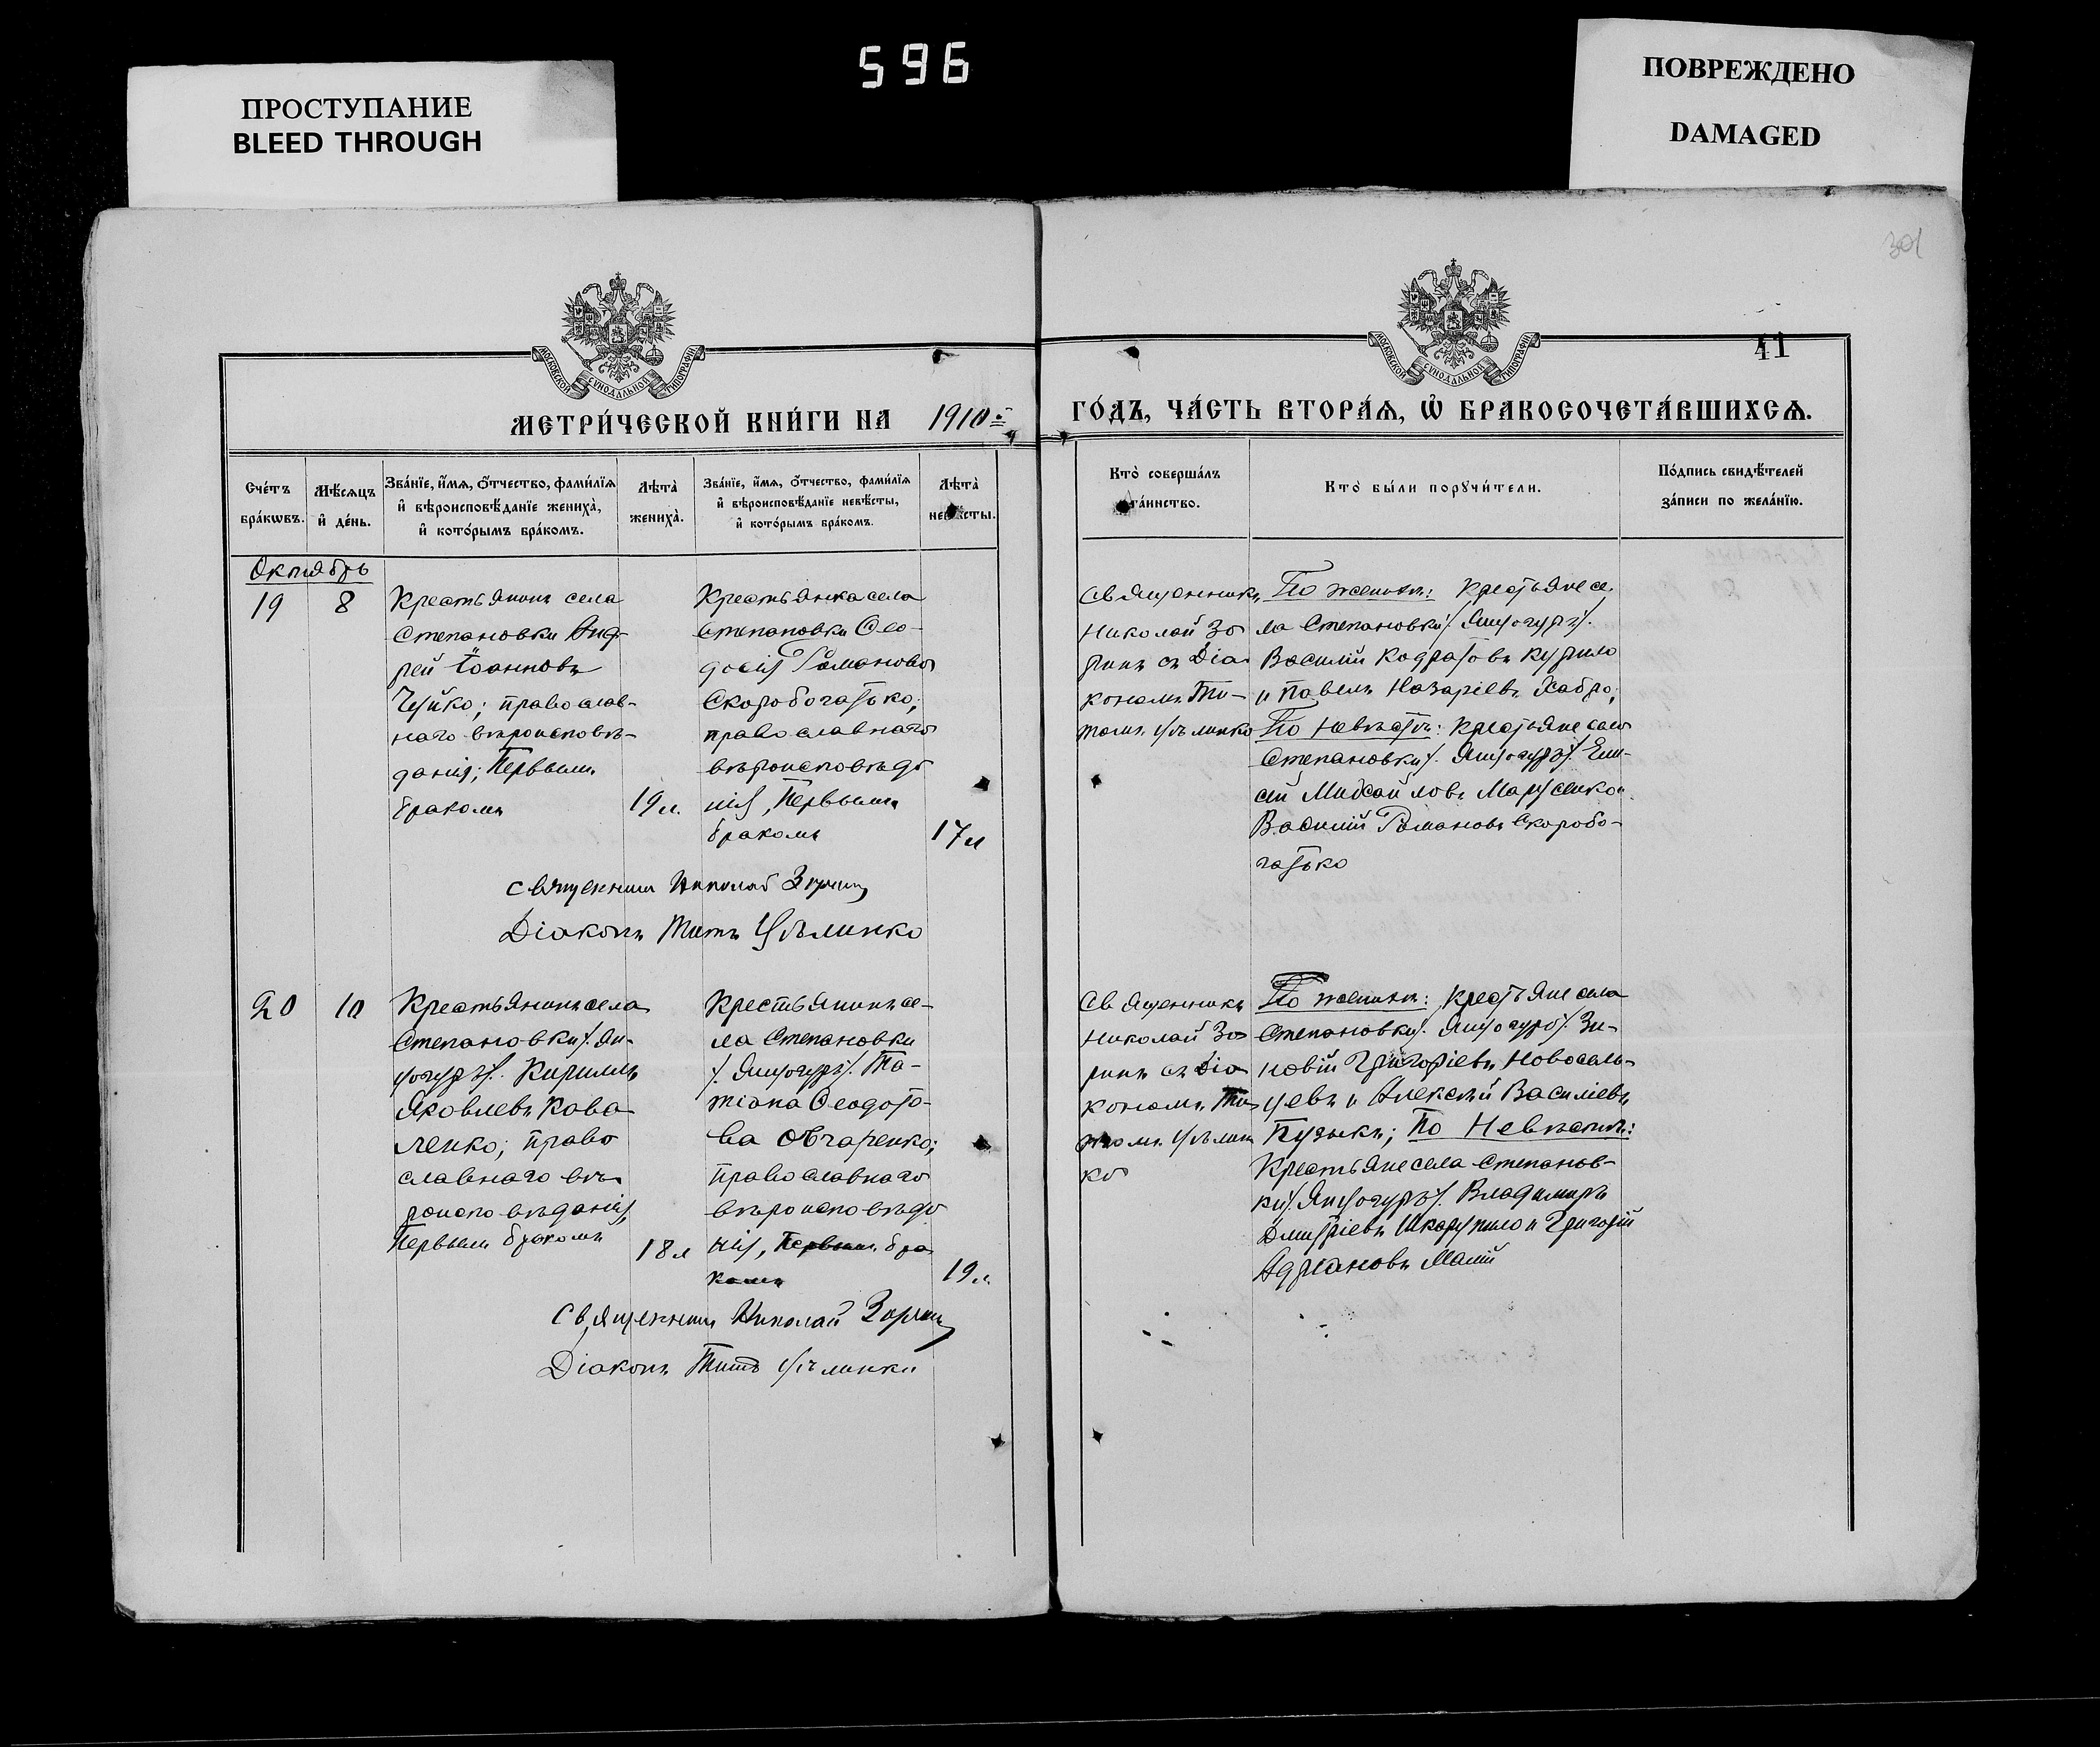 596
ПРОСТУПАНИЕ
BLEED THROUGH
ПОВРЕЖДЕНО
DAMAGED
301
41
МОСКОВСКОЙ СѴНОДАЛЬНОЙ ТИПОГРАФІИ
МЕТРИ́ЧЕСКОЙ КНИ́ГИ НА 1910
Сче́тъ бра́кѡвъ.
Мѣ́сяцъ и҆ де́нь.
Зва́нїе, и҆́мѧ, ѻ҆́тчество, фами́лїѧ
и҆ вѣроисповѣ́данїе жениха̀,
и҆ кото́рымъ бра́комъ.
Лѣта̀ жениха̀.
Зва́нїе, и҆́мѧ, ѻ҆́тчество, фами́лїѧ
и҆ вѣроисповѣ́данїе невѣ́сты,
и҆ кото́рымъ бра́комъ.
Лѣта̀ невѣ́сты.
Октябрь
19
8
Крестьянинъ села
Степановки Анд-
рей Іоанновъ
Чуйко; православ-
наго вѣроисповѣ-
данія; Первымъ
бракомъ
19 л.
Крестьянка села
Степановки Ѳео-
досія Романова
Скоробогатько;
православнаго
вѣроисповѣда
нія, Первымъ
бракомъ
17 л
Священникъ Николай Зоринъ
Діаконъ Титъ Цѣлинко
20
10
Крестьянинъ села
Степановки
Кириллъ
Яковлевъ Кова
ленко; право
славнаго вѣ
роисповѣданія,
Первымъ бракомъ
18 л
Крестьянинъ се-
ла Степановки
Та-
тіана Ѳеодото-
ва Овчаренко;
православнаго
вѣроисповѣда
нія, Первымъ бра
комъ
19 л.
Священникъ Николай Зоринъ
Діаконъ Титъ Цѣлинко
МОСКОВСКОЙ СѴНОДАЛЬНОЙ ТИПОГРАФІИ
ГО́ДЪ, ЧА́СТЬ ВТОРА́Ѧ, Ѡ҆ БРАКОСОЧЕТА́ВШИХСѦ.
Кто̀ соверша́лъ
та́инство.
Кто̀ бы́ли порꙋчи́тели.
По́дпись свидѣ́телей
за́писи по жела́нїю.
Священникъ
Николай Зо
ринъ съ Діа
кономъ Ти-
томъ Цѣлинко
По женихѣ: крестьяне се
ла Степановки
Василій Кодратовъ Курило
и Павелъ Назаріевъ Хабро;
По Невѣстѣ: крестьяне села
Степановки Ели-
сей Михайловъ Марусенко и
Василій Романовъ Скоробо-
гатько
Священникъ
Николай Зо
ринъ съ Діа
кономъ Ти
томъ Цѣлин
ко
По женихѣ: крестьяне села
Степановки Зи-
новій Григоріевъ Новосель-
цевъ и Алексѣй Василіевъ
Пузыкъ; По Невѣстѣ:
Крестьяне села Степанов-
ки Владимиръ
Димитріевъ Шкарупило и Григорій
Адріановъ Малій